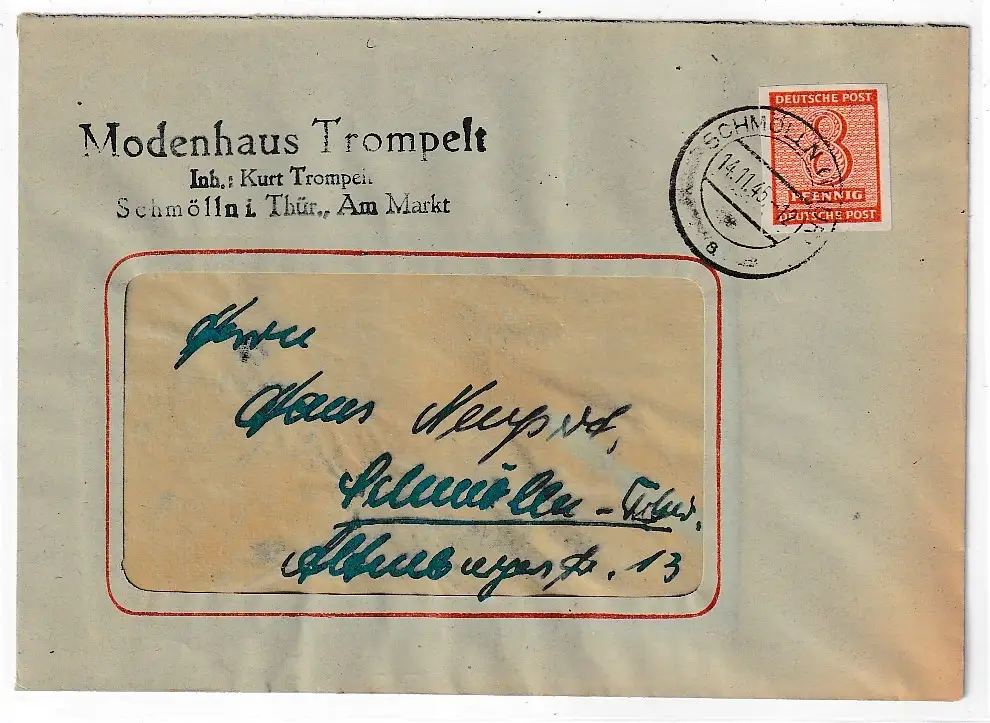 Modenhaus Trompelt
Inh.: Kurt Trompelt
Schmölln i. Thür., Am Markt
DEUTSCHE POST
8
PFENNIG
DEUTSCHE POST
SCHMÖLLN
14.11.45
a
Herrn
Hans
Schmölln - Thür.
Altenburgerstr. 13